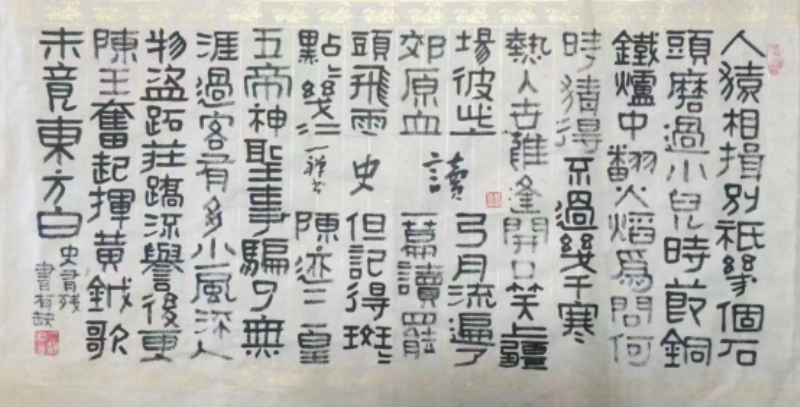 人猿相揖別祇幾個石
頭磨過小兒時節銅
鐵爐中翻火焰爲問何
時猜得不過幾千寒
熱人世難逢開口笑上疆
場彼此弓月流遍了
郊原血一篇讀罷
頭飛雪但記得斑〻
點〻幾行陳迹三皇
五帝神聖事騙了無
涯過客有多少風流人
物盜跖莊蹻流譽後更
陳王奮起揮黃鉞歌
未竟東方白
讀史
史書残
書有缺